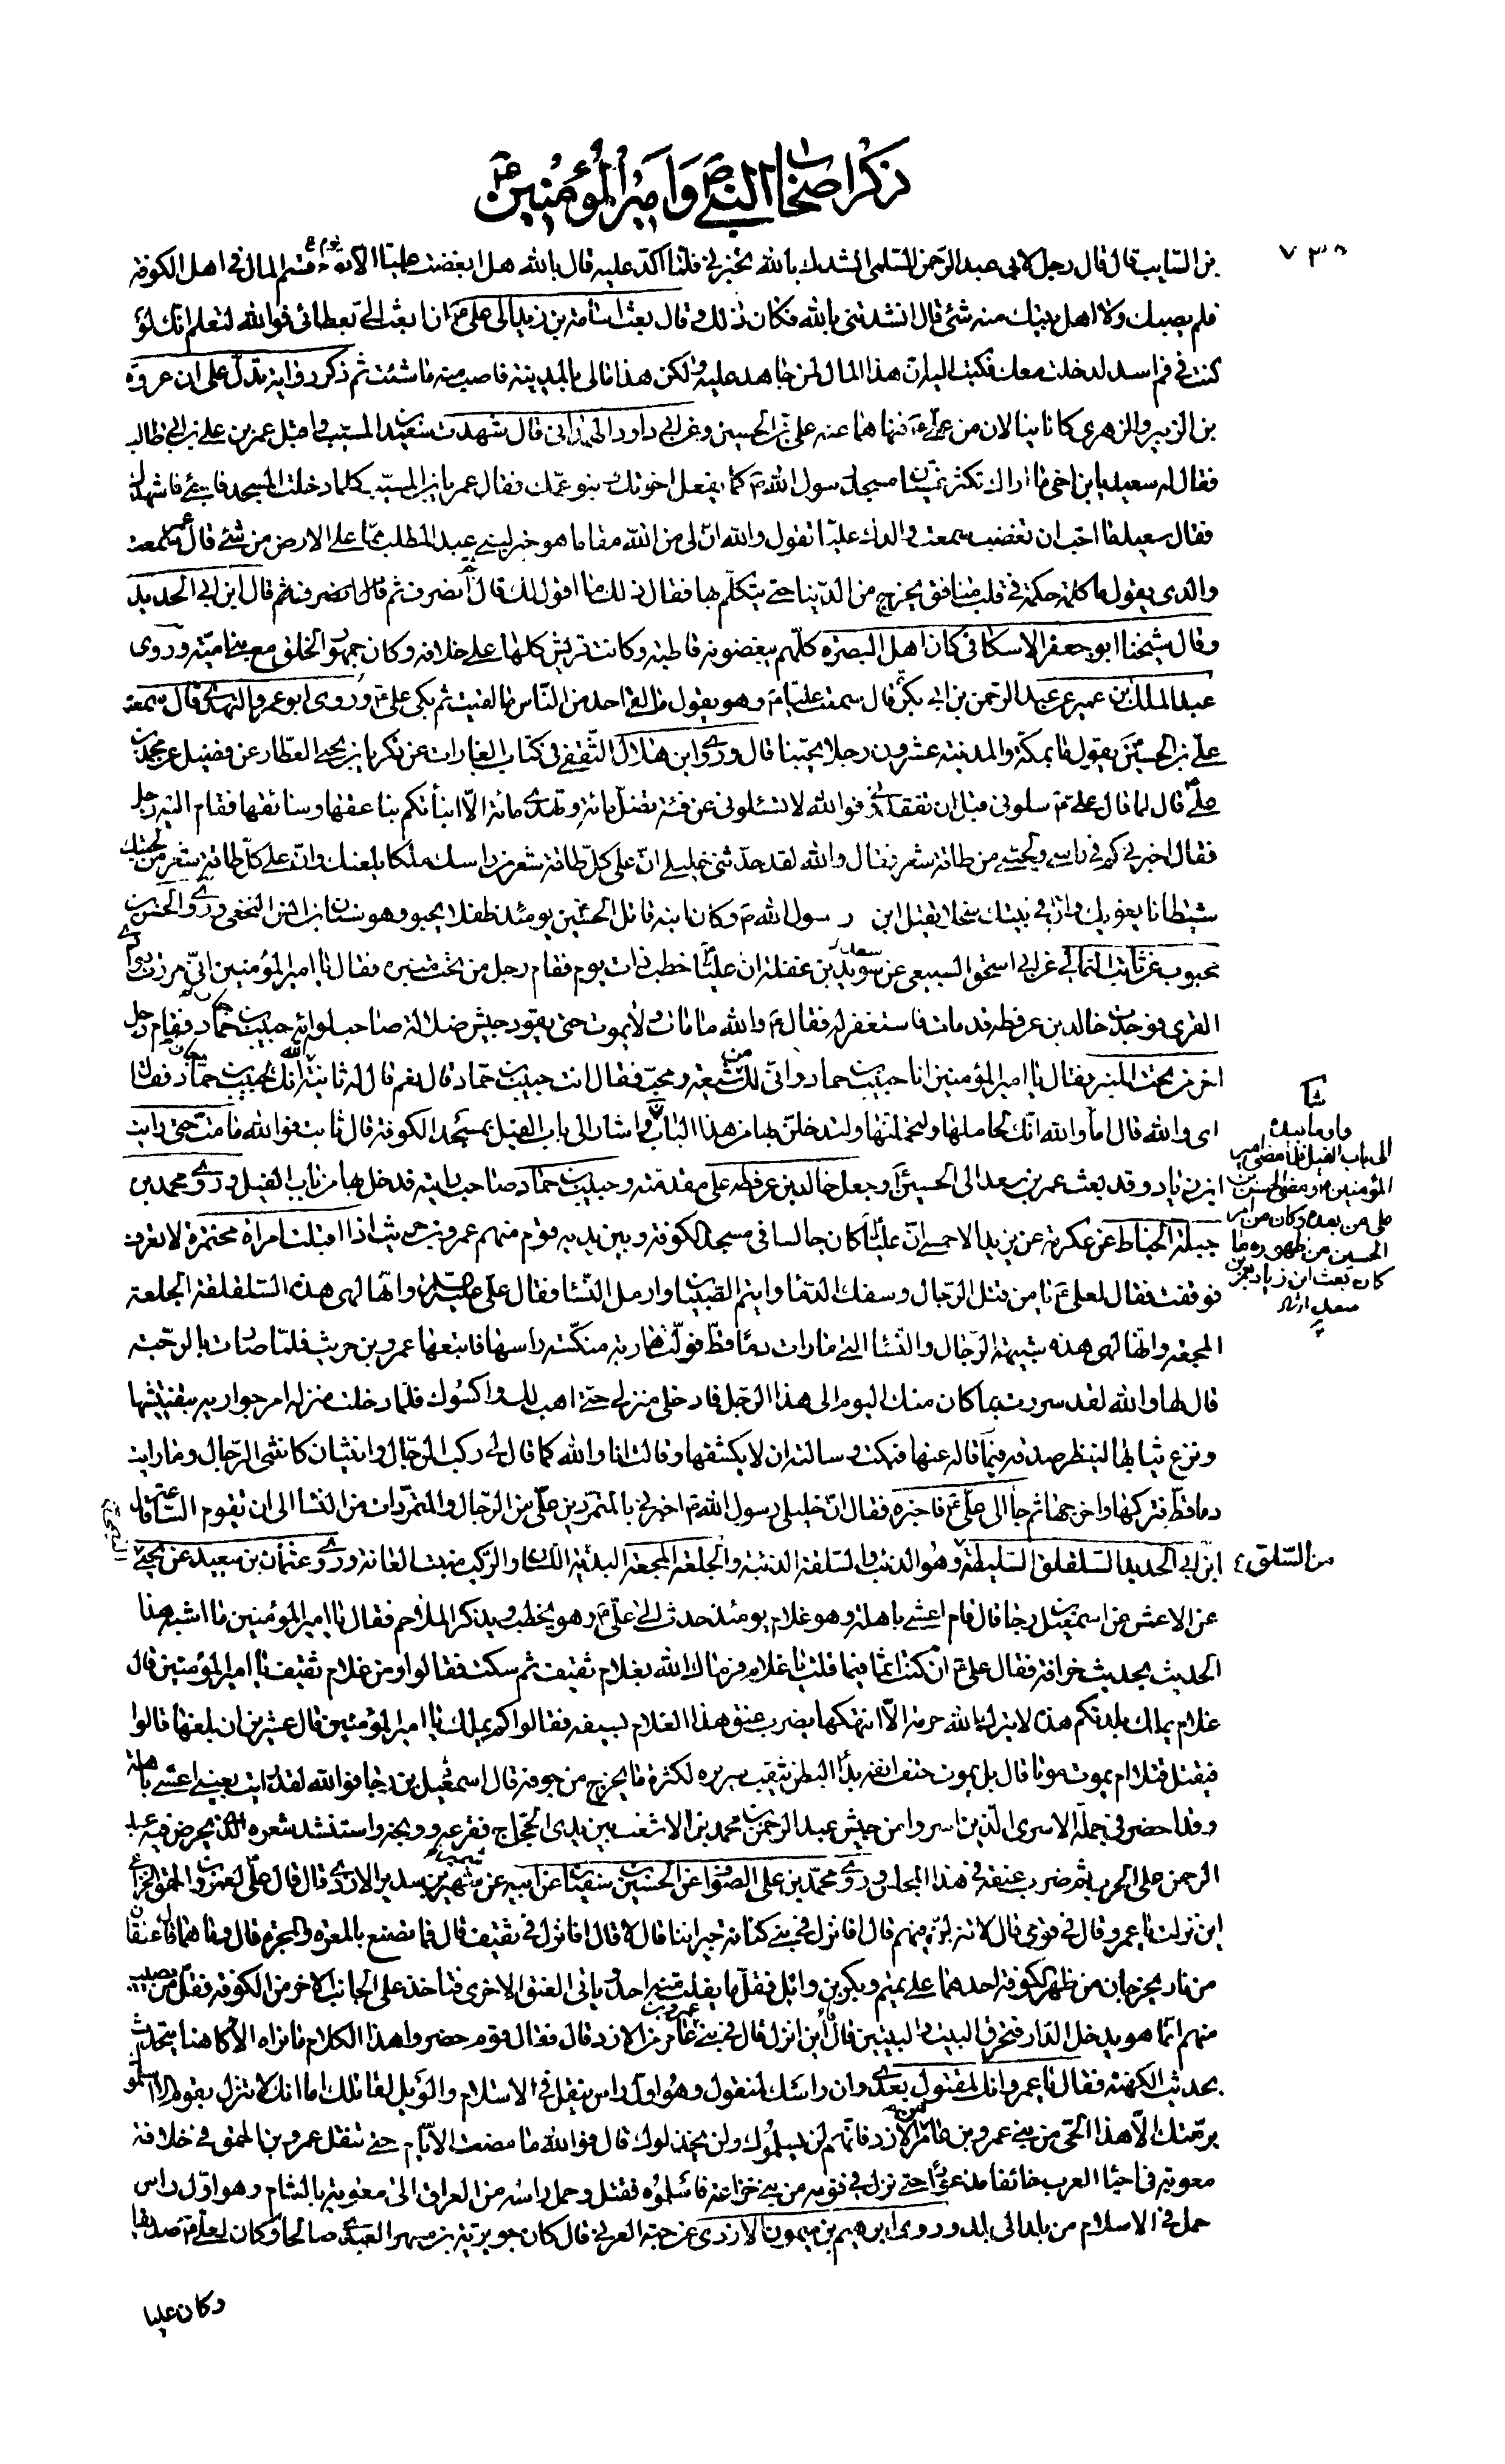 ذكر اصحاب النبي ص وامير المؤمنين ع
٧٣٥
بن السايب قال قال رجل لابى عبد الرّحمن السّلمى انشدك بالله تخبرني فلمّا اكّد عليه قال بالله هل ابغضت عليّا الّا يوم قسم المال في اهل الكوفة
فلم يصبك ولا اهل بيتك منه شئ قال انشدتنى بالله فكان ذلك وقال بعث اسامة بن زيد الى علي ع ان ابعث الىّ بعطائى فوالله لتعلم انّك لو
كنت في فم اسد لدخلت معك فكتب اليه انّ هذا المال لمن جاهد عليه ولكن هذا مالى بالمدينة فاصب منه ما شئت ثم ذكر رواية تدلّ على ان عروة
بن الزبير والزهرى كانا ينالان من علي ع فنهاهما عنه على بن الحسين وعن ابي داود الهمدانى قال شهدت سعيد بن المسيّب واقبل عمر بن علي بن ابي طالب
فقال له سعيد يا بن اخى ما اراك تكثر غشيان مسجد رسول الله ص كما يفعل اخوتك وبنو عمّك فقال عمر يا بن المسيّب كلما دخلت المسجد فاجئ فاشهدك
فقال سعيد ما احبّ ان تغضب سمعت والدك عليّا يقول والله انّ لى من الله مقاما هو خير لبني عبد المطلب ممّا على الارض من شئ قال عمر سمعت
والدى يقول ما كلمة حكمة في قلب منافق يخرج من الدّنيا حتى يتكلّم بها فقال ذلك ما اقول لك قال ثم انصرف ثم قال ابن ابي الحديد
وقال شيخنا ابو جعفر الاسكافى كان اهل البصرة كلّهم يبغضونه قاطبة وكانت قريش كلها على خلافه وكان جمهور الخلق مع بنى اميّة وروى
عبد الملك بن عمير عن عبد الرحمن بن ابي بكرة قال سمعت عليّا ع وهو يقول ما لقى احد من النّاس ما لقيت ثم بكى علي ع وروى ابو عمرو النهدى قال سمعت
علي بن الحسين ع يقول ما بمكّة والمدينة عشرون رجلا يحبّنا قال وروى ابن هلال الثّقفى في كتاب الغارات عن زكريا بن يحيى العطّار عن فضيل عن محمد بن
علي قال لما قال علي ع سلونى قبل ان تفقدونى فوالله لا تسئلونى عن فئة تضلّ مائة وتهدى مائة الّا انبأتكم بناعقها وسائقها فقام اليه رجل
فقال اخبرنى كم في راسى ولحيتى من طاقة شعر فقال والله لقد حدّثنى خليلى انّ على كلّ طاقة شعر من راسك ملكا يلعنك وانّ على كلّ طاقة شعر من لحيتك
شيطانا يغويك وانّ في بيتك سخلا يقتل ابن رسول الله ص وكان ابنه قاتل الحسين يومئذ طفلا يحبو وهو سنان بن انس النخعى وروى الحسن بن
محبوب عن ثابت الثمالى عن ابي اسحق السبيعى عن سويد بن غفلة ان عليّا ع خطب ذات يوم فقام رجل من تحت منبره فقال يا امير المؤمنين انّى مررت بوادى
القرى فوجدت خالد بن عرفطه قد مات فاستغفر له فقال ع والله ما مات ولا يموت حتى يقود جيش ضلالة صاحب لوائه حبيب بن حمّاد فقام رجل
اخر من تحت المنبر فقال يا امير المؤمنين انا حبيب بن حماد وانّى لك شيعة ومحبّ فقال انت حبيب بن حمّاد قال نعم قال له ثانية الله انك لحبيب بن حمّاد فقال
اى والله قال اما والله انّك لحاملها ولتحملنّها ولتدخلنّ بها من هذا الباب واشار الى باب الفيل بمسجد الكوفة قال ثابت فوالله ما متّ حتى رايت
ابن زياد وقد بعث عمر بن سعد الى الحسين ع وجعل خالد بن عرفطه على مقدّمته وحبيب بن حمّاد صاحب رايته فدخل بها من باب الفيل وروى محمد بن
جبلة الخيّاط عن عكرمة عن يزيد الاحمسى انّ عليّا ع كان جالسا في مسجد الكوفة وبين يديه قوم منهم عمرو بن حريث اذ اقبلت امراة مختمرة لا تعرف
فوقفت فقال لعلى ع يا من قتل الرّجال وسفك الدّما وايتم الصّبيان وارمل النّسا فقال علي ع وانّها لهى هذه السّلقلقة الجلعة
المجعة وانّها لهى هذه شبيهة الرّجال والنّسا التى ما رات دمًا قطّ فولّت هاربة منكّسة راسها فاتبعها عمرو بن حريث فلمّا صارت بالرّحبة
قال لها والله لقد سررت بما كان منك اليوم الى هذا الرّجل فادخلى منزلى حتى اهب لك واكسوك فلمّا دخلت منزله امر جواريه بتفتيشها
ونزع ثيابها لينظر صدقه فيما قاله عنها فبكت وسالته ان لا يكشفها وقالت انا والله كما قال لى ركب الرّجال وانثيان كانثى الرّجال وما رايت
دما قطّ فتركها واخرجها ثم جا الى علي ع فاخبره فقال انّ خليلى رسول الله ص اخبرنى بالمتمرّدين علىّ من الرّجال والمتمرّدات من النّسا الى ان تقوم السّاعة قال
ابن ابي الحديد السّلقلق السّليطة وهو الذئب والسّلقة الذئبة والجلعة المجعة البذيّة اللّسان والركب منبت العانة وروى عثمان بن سعيد عن يحيى
من السّلق
عن الاعمش عن اسمعيل بن رجا قال قام اعشى باهلة وهو غلام يومئذ حدث الى علي ع وهو يخطب ويذكر الملاحم فقال يا امير المؤمنين ما اشبه هذا
الحديث بحديث خرافة فقال علي ع ان كنت اثما فيما قلت يا غلام فرماك الله بغلام ثقيف ثم سكت فقالوا ومن غلام ثقيف يا امير المؤمنين قال
غلام يملك بلدتكم هذه لا يترك لله حرمة الّا انتهكها يضرب عنق هذا الغلام بسيفه فقالوا كم يملك يا امير المؤمنين قال عشرين ان بلغها قالوا
فيقتل قتلا ام يموت موتا قال بل يموت حتف انفه بدأ البطن يثقب سريره لكثرة ما يخرج من جوفه قال اسمعيل بن رجا فوالله لقد رايت بعينى اعشى باهلة
وقد احضر في جملة الاسرى الّذين اسروا من جيش عبد الرحمن بن محمد بن الاشعث بين يدى الحجّاج فقرعه ووبخه واستنشد شعره الذى يحرض فيه عبد
الرحمن على الحرب ثم ضرب عنقه في هذا المجلس وروى محمّد بن على الصّوّاف عن الحسين بن سفيان عن ابيه عن شهير بن سدير الازدى قال قال علي لعمرو بن الحمق الخزاعى
اين نزلت يا عمرو قال في قومى قال لا تنزلنّ فيهم قال افانزل في بنى كنانة جيراننا قال لا قال افانزل في ثقيف قال فما تصنع بالمعرة والمجرة قال وما هما قال عنقان
من نار يخرجان من ظهر الكوفة احدهما على تميم وبكر بن وائل فقلّما يفلت منه احد وياتى العنق الاخرى فتاخذ على الجانب الاخر من الكوفة فقلّ من يصيب
منهم انّما هو يدخل الدّار فتحرق البيت والبيتين قال فاين انزل قال في بنى عمرو بن عامر من الازد قال فقال قوم حضروا هذا الكلام ما نراه الّا كاهنا يتحدّث
بحديث الكهنة فقال يا عمرو انك لمقتول بعدى وان راسك لمنقول وهو اول راس ينقل في الاسلام والويل لقاتلك اما انك لا تنزل بقوم الّا اسلموك
برمّتك الّا هذا الحىّ من بنى عمرو بن عامر من الازد فانّهم لن يسلموك ولن يخذلوك قال فوالله ما مضت الايّام حتى تنقل عمرو بن الحمق في خلافة
معوية في احيا العرب خائفا مذعورا حتى نزل في قومه من بنى خزاعة فاسلموه فقتل وحمل راسه من العراق الى معوية بالشام وهو اوّل راس
حمل في الاسلام من بلد الى بلد وروى ابرهيم بن ميمون الازدى عن حبّة العرنى قال كان جويرية بن مسهر العبدى صالحا وكان لعلي ع صديقا
الى باب الفيل فلمّا مضى امير
المؤمنين ع ومضى الحسن بن
على من بعده وكان من امر
الحسين ومن ظهوره ما
كان بعث ابن زياد بعمر بن
سعد
وكان عليا